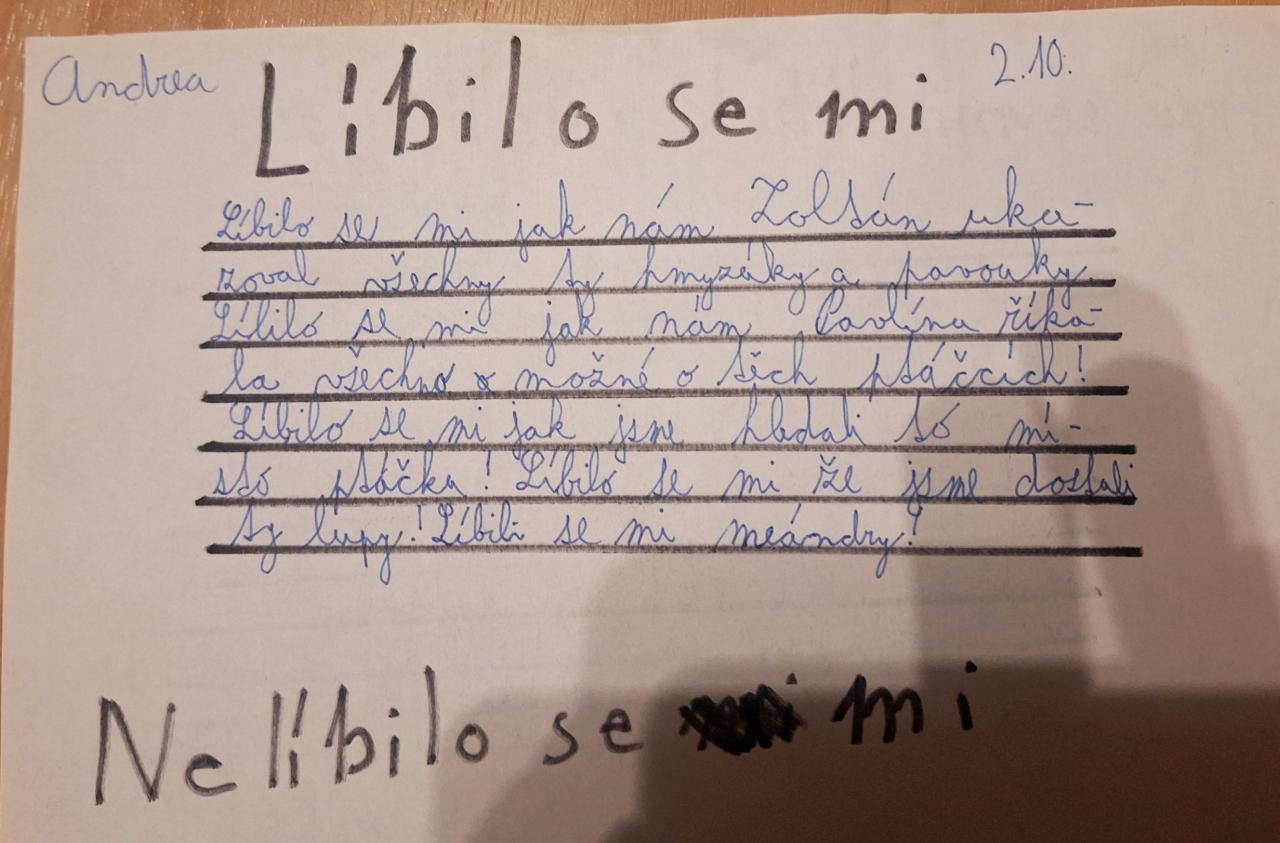 Andrea
Líbilo se mi
2.10.
Líbilo se mi jak nám Zoltán uka-
zoval všechny ty hmyzáky a pavouky.
Líbilo se mi jak nám Pavlína říka-
la všechno o možné o těch ptáčcích!
Líbilo se mi jak jsme hledali to mí-
sto ptáčka! Líbilo se mi že jsme dostali
ty lupy! Líbili se mi meándry!
Nelíbilo se mi